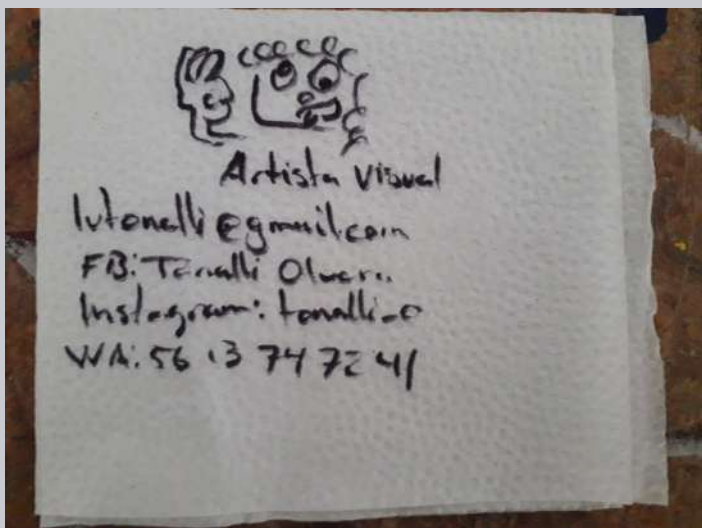 Artista Visual
lutonalli@gmail.com
FB: Tonalli Olvera
Instagram: tonalli_o
WA: 56 13 74 72 41